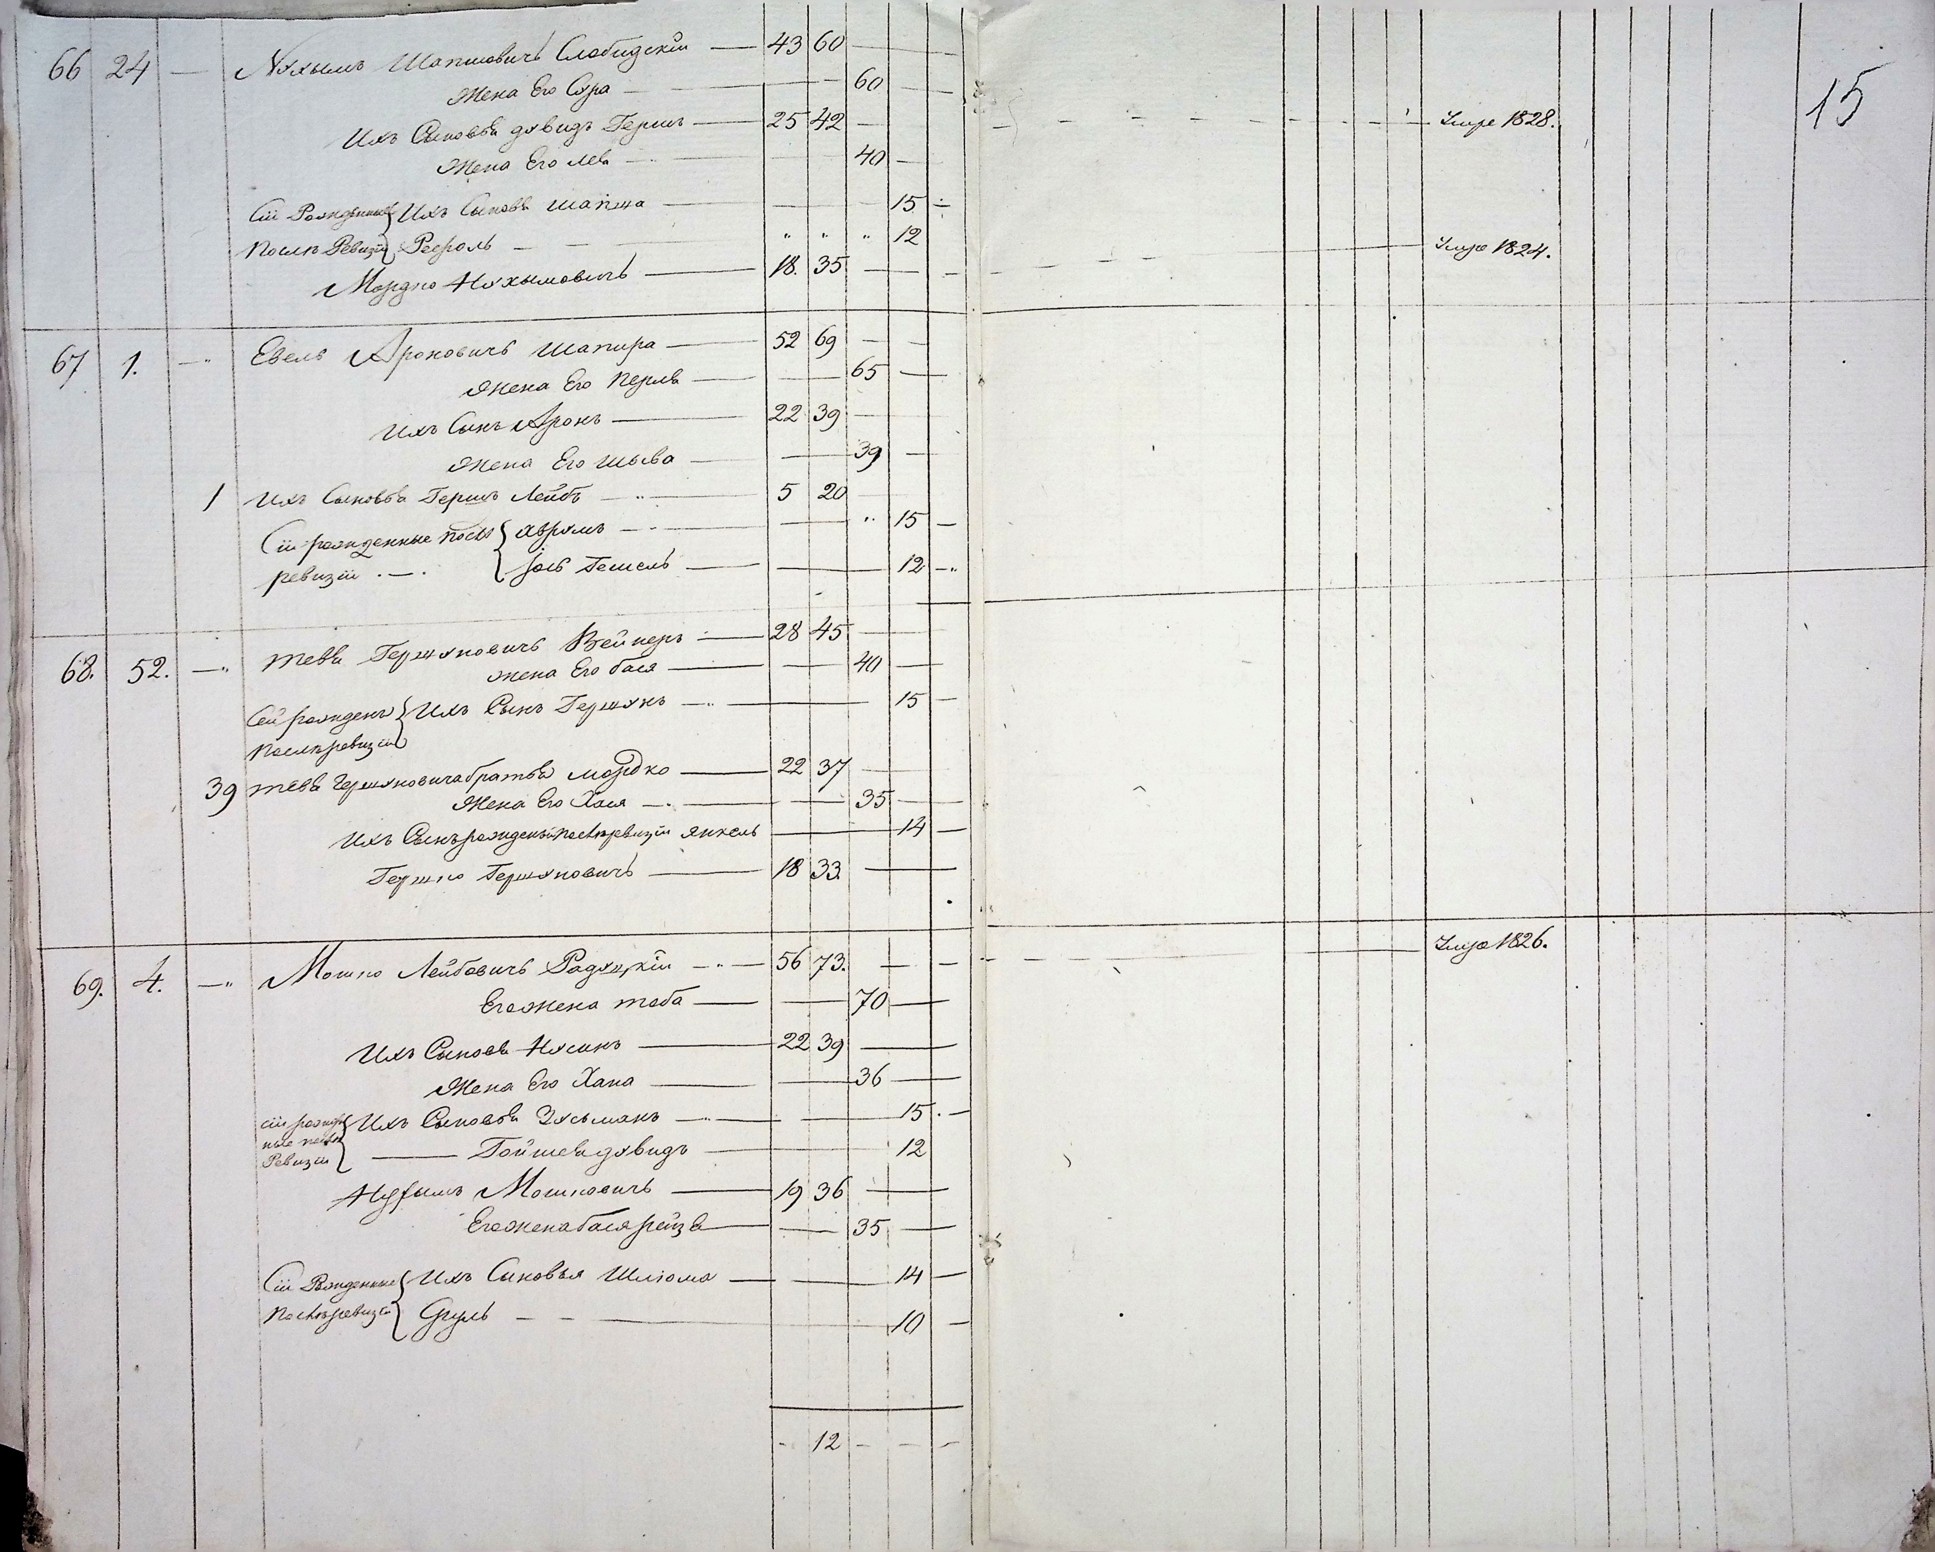 15
66 24 — Нухымъ Шапшовичъ Слободскій — 43 60
Жена Его Сура — 60
Ихъ Сыновья Давидъ Герш — 25 42 — Умре 1828.
Жена Его Лея — 40 —
Сіи Рожденные Ихъ Сыновья Шапша — 15
Послѣ Ревизіи Рефоль — " " " 12
Мордко Нухымовичъ — 18. 35 — Умре 1824.
67 1. — Евель Ароновичъ Шапира — 52 69 —
Жена Его Перля — 65 —
Ихъ Сынъ Аронъ — 22 39 —
Жена Его Шыва — 39 —
1 Ихъ Сыновья Гершъ Лейбъ — 5 20
Сіи рожденные послѣ Аврумъ — " 15 —
ревизіи . — . Іось Гешель — 12 —
68. 52. — Тевя Гершковичъ Вейнеръ — 28 45 —
жена Его бася — 40 —
Сей рожденъ Ихъ Сынъ Гершонъ — 15 —
послѣ ревизіи
39 Тевя Гершковича братья Мордко — 22 37 —
Жена Его Хася — 35 —
Ихъ Сынъ рожденъ послѣ ревизіи Янкель — 14 —
Гершко Гершковичъ — 18 33. —
69. 4. — Мошко Лейбовичъ Радуцкій — 56 73. — Умре 1826.
Его жена тоба — 70 —
Ихъ Сыновья Нусинъ — 22 39 —
Жена Его Хана — 36 —
сіи рожде Ихъ Сыновья Зусьманъ — 15. —
ные послѣ
Ревизіи — Гойшея давидъ — 12
Нухымъ Мошковичъ — 19 36 —
Его жена бася рейзя — 35 —
Сіи Рожденные Ихъ Сыновья Шліома — 14 —
послѣ ревизіи Сруль — 10 —
- 12 - - -